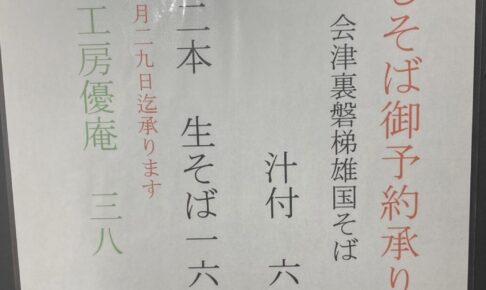 しそば御予約承り
会津裏磐梯雄国そば
汁付 六
二本 生そば一六
月二九日迄承ります
工房優庵 三八